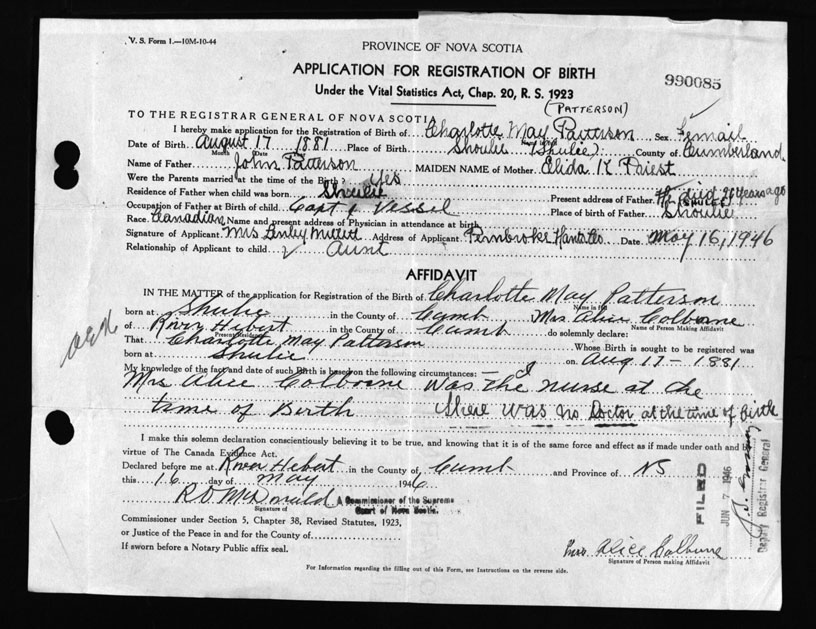 V. S. Form 1.—10M-10-44
PROVINCE OF NOVA SCOTIA
APPLICATION FOR REGISTRATION OF BIRTH
990085
Under the Vital Statistics Act, Chap. 20, R. S. 1923
(PATTERSON)
TO THE REGISTRAR GENERAL OF NOVA SCOTIA
I hereby make application for the Registration of Birth of Charlotte May Patterson Sex Femail
Date of Birth August 17 1881 Place of Birth Shoulie (Shulie) County of Cumberland
Month Date Name in full
Name of Father John Patterson MAIDEN NAME of Mother Elida K Priest
Were the Parents married at the time of the Birth? Yes
Residence of Father when child was born Shoulie Present address of Father died years ago
Occupation of Father at Birth of child Capt of Vessil Place of birth of Father Shoulie
Race Canadian Name and present address of Physician in attendance at birth
Signature of Applicant Mrs Address of Applicant Pembroke Hants Co Date May 16, 1946
Relationship of Applicant to child Aunt
AFFIDAVIT
IN THE MATTER of the application for Registration of the Birth of Charlotte May Patterson
Name in full
born at Shulie in the County of Cumb Mrs Alice Colborne
Name of Person Making Affidavit
of River Hebert in the County of Cumb do solemnly declare:
Present Residence
That Charlotte May Patterson Whose Birth is sought to be registered was
born at Shulie on Aug 17 - 1881
My knowledge of the fact and date of such Birth is based on the following circumstances:— I
Mrs Alice Colborne was the nurse at the
time of Birth There was no Doctor at the time of Birth
I make this solemn declaration conscientiously believing it to be true, and knowing that it is of the same force and effect as if made under oath and by
virtue of The Canada Evidence Act.
Declared before me at River Hebert in the County of Cumb and Province of NS
this 16 day of May 1946
R D McDonald A Commissioner of the Supreme
Court of Nova Scotia.
Signature of
Commissioner under Section 5, Chapter 38, Revised Statutes, 1923,
or Justice of the Peace in and for the County of
If sworn before a Notary Public affix seal.
Mrs Alice Colborne
Signature of Person making Affidavit
For Information regarding the filling out of this Form, see Instructions on the reverse side.
FILED
JUN 7 1946
Deputy Registrar General